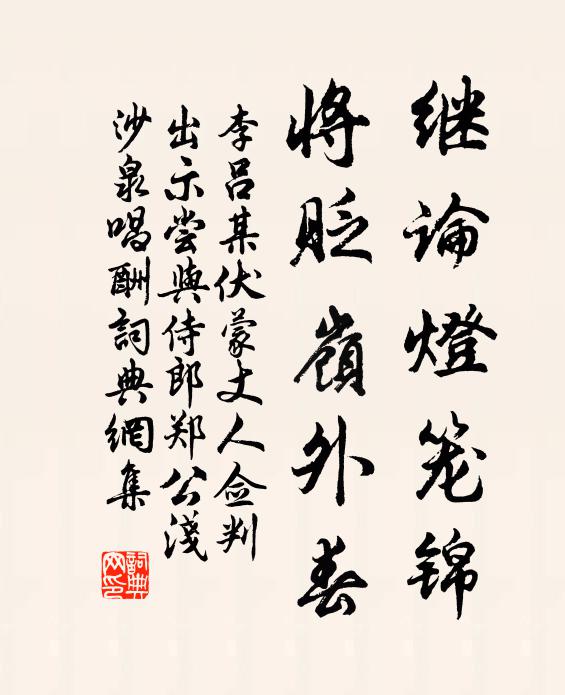 继論燈笼锦
将贬嶺外春
李吕某伏蒙丈人佥判
出示尝與侍郎郑公淺
沙泉唱酬詞典網集
詞典网印